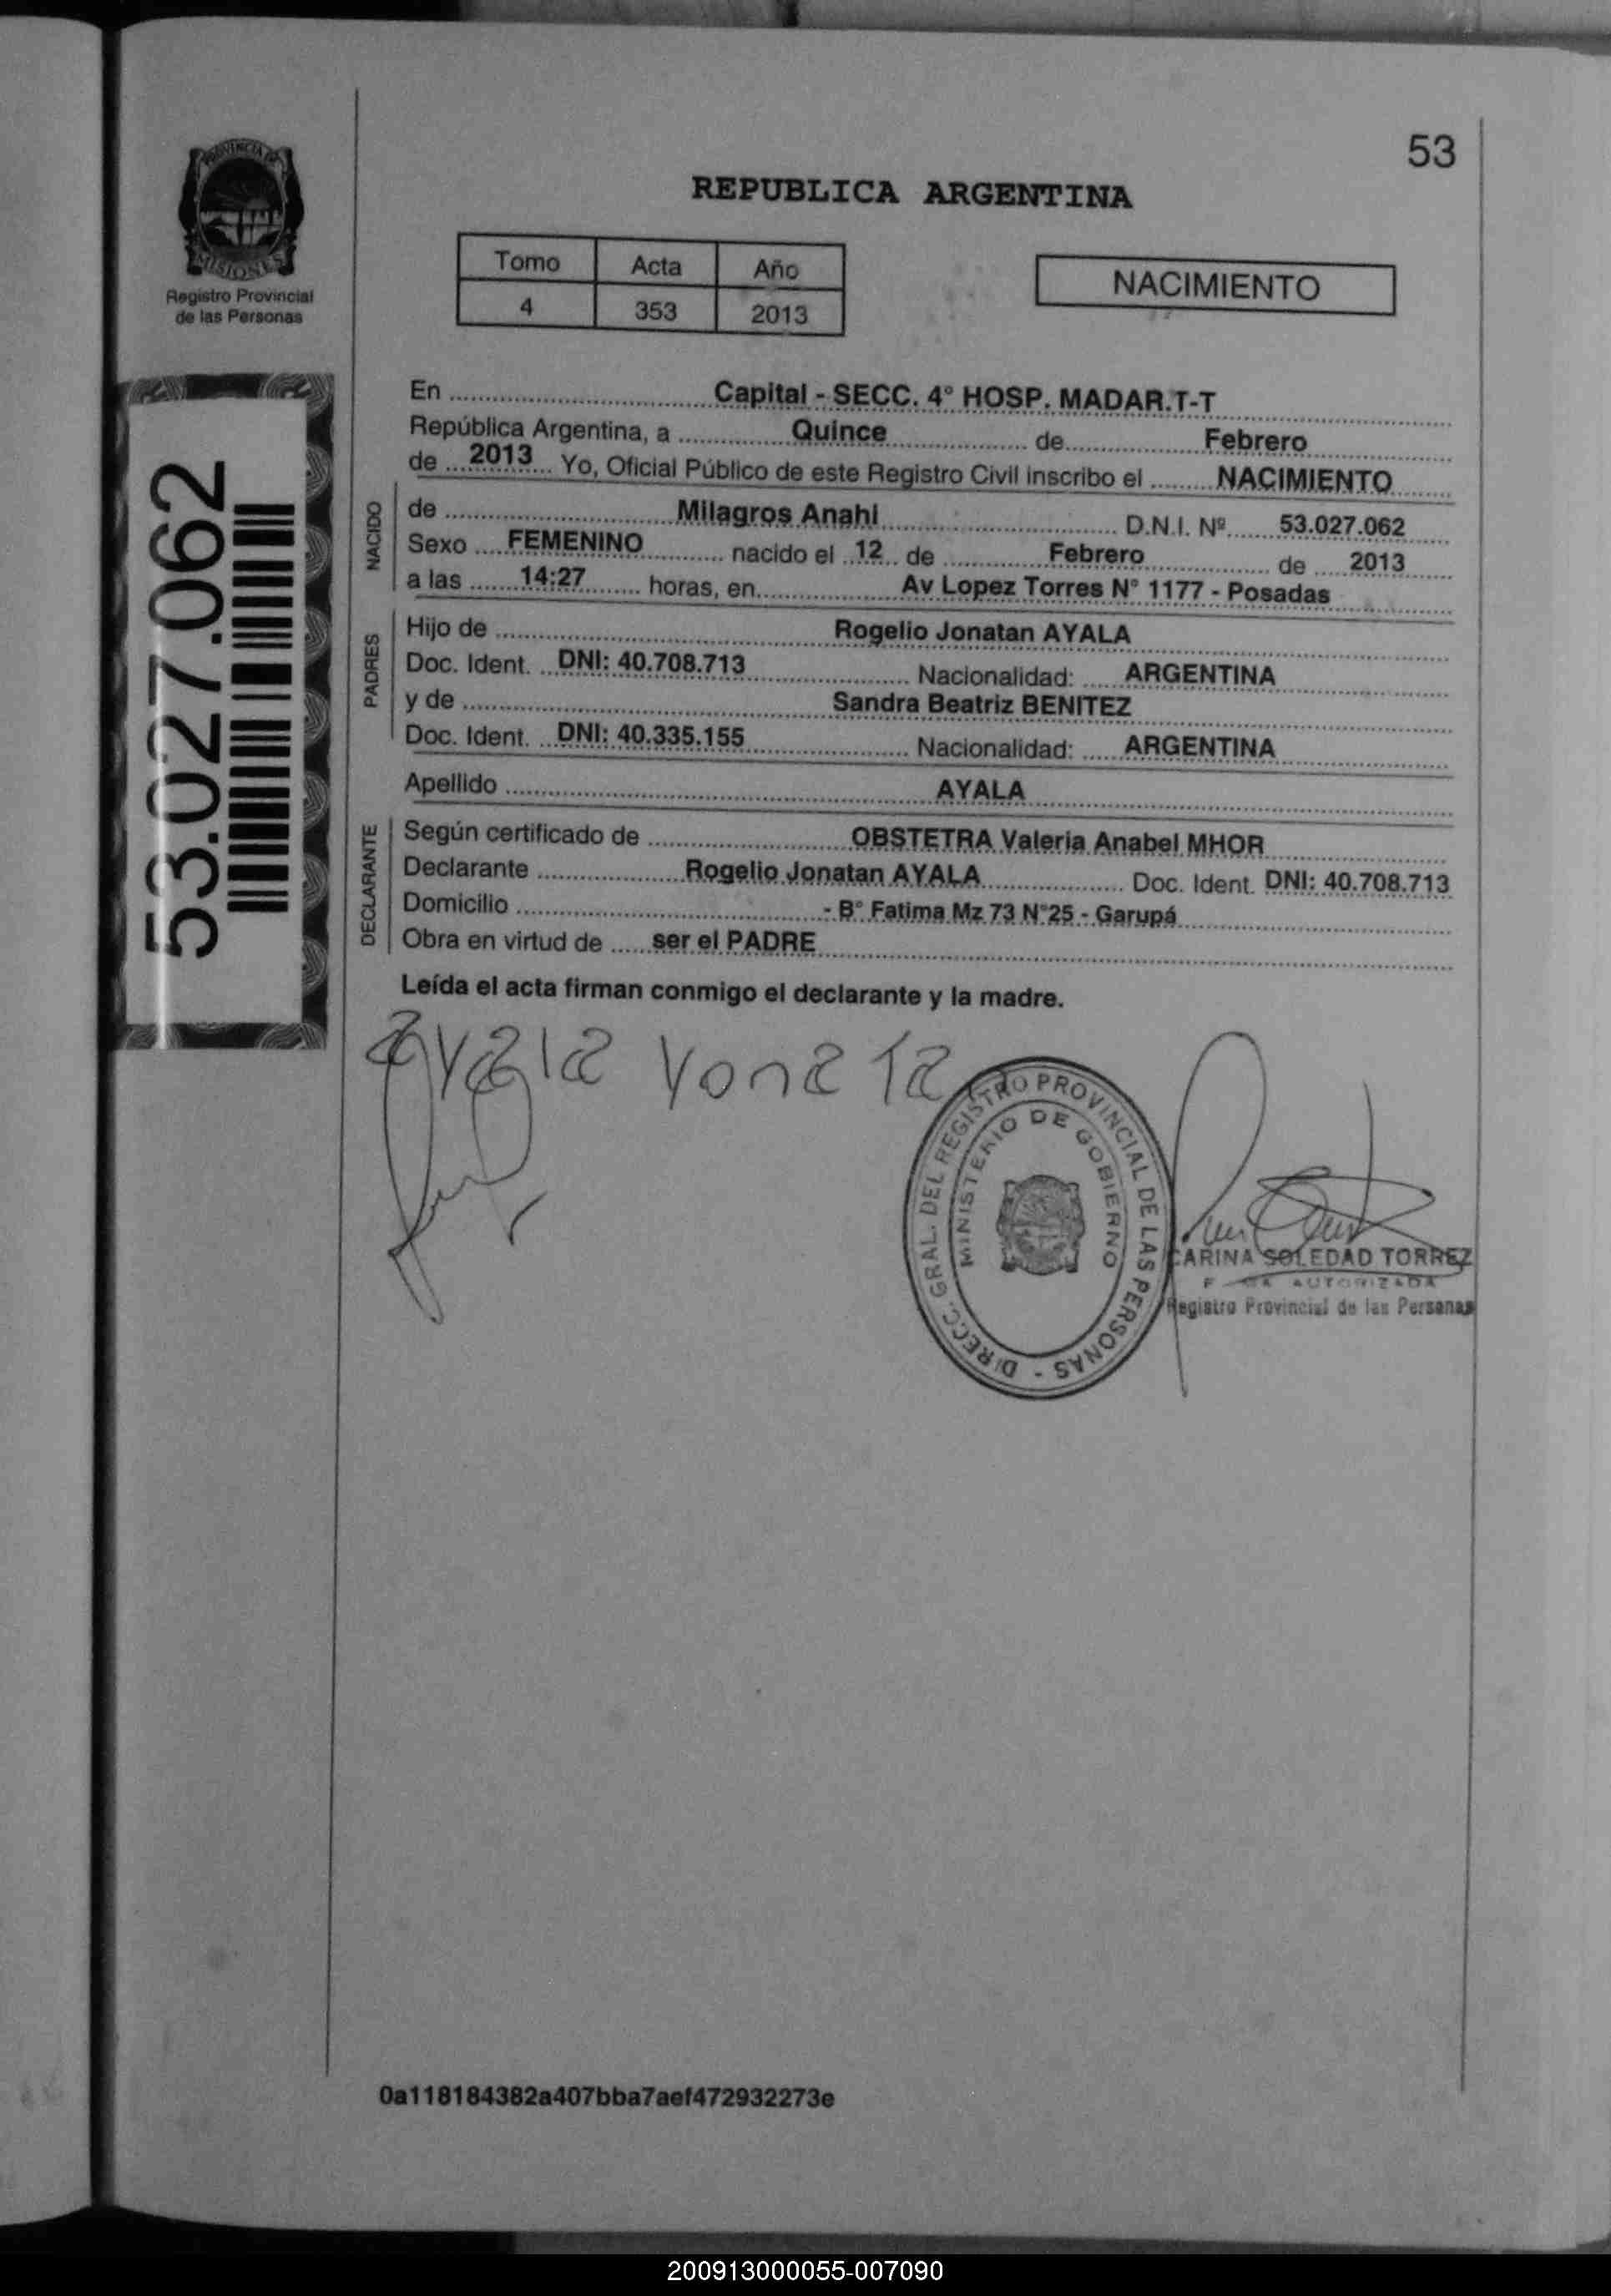 53
PROVINCIA DE
MISIONES
Registro Provincial
de las Personas
REPUBLICA ARGENTINA
Tomo Acta Año
4 353 2013
NACIMIENTO
53.027.062
En Capital - SECC. 4° HOSP. MADAR.T-T
República Argentina, a Quince de Febrero
de 2013 Yo, Oficial Público de este Registro Civil inscribo el NACIMIENTO
NACIDO
de Milagros Anahi D.N.I. Nº 53.027.062
Sexo FEMENINO nacido el 12 de Febrero de 2013
a las 14:27 horas, en Av Lopez Torres N° 1177 - Posadas
PADRES
Hijo de Rogelio Jonatan AYALA
Doc. Ident. DNI: 40.708.713 Nacionalidad: ARGENTINA
y de Sandra Beatriz BENITEZ
Doc. Ident. DNI: 40.335.155 Nacionalidad: ARGENTINA
Apellido AYALA
DECLARANTE
Según certificado de OBSTETRA Valeria Anabel MHOR
Declarante Rogelio Jonatan AYALA Doc. Ident. DNI: 40.708.713
Domicilio - B° Fatima Mz 73 N°25 - Garupá
Obra en virtud de ser el PADRE
Leída el acta firman conmigo el declarante y la madre.
ayala yonata
DIRECC. GRAL. DEL REGISTRO PROVINCIAL DE LAS PERSONAS -
MINISTERIO DE GOBIERNO
CARINA SOLEDAD TORREZ
AUTORIZADA
Registro Provincial de las Personas
0a118184382a407bba7aef472932273e
200913000055-007090